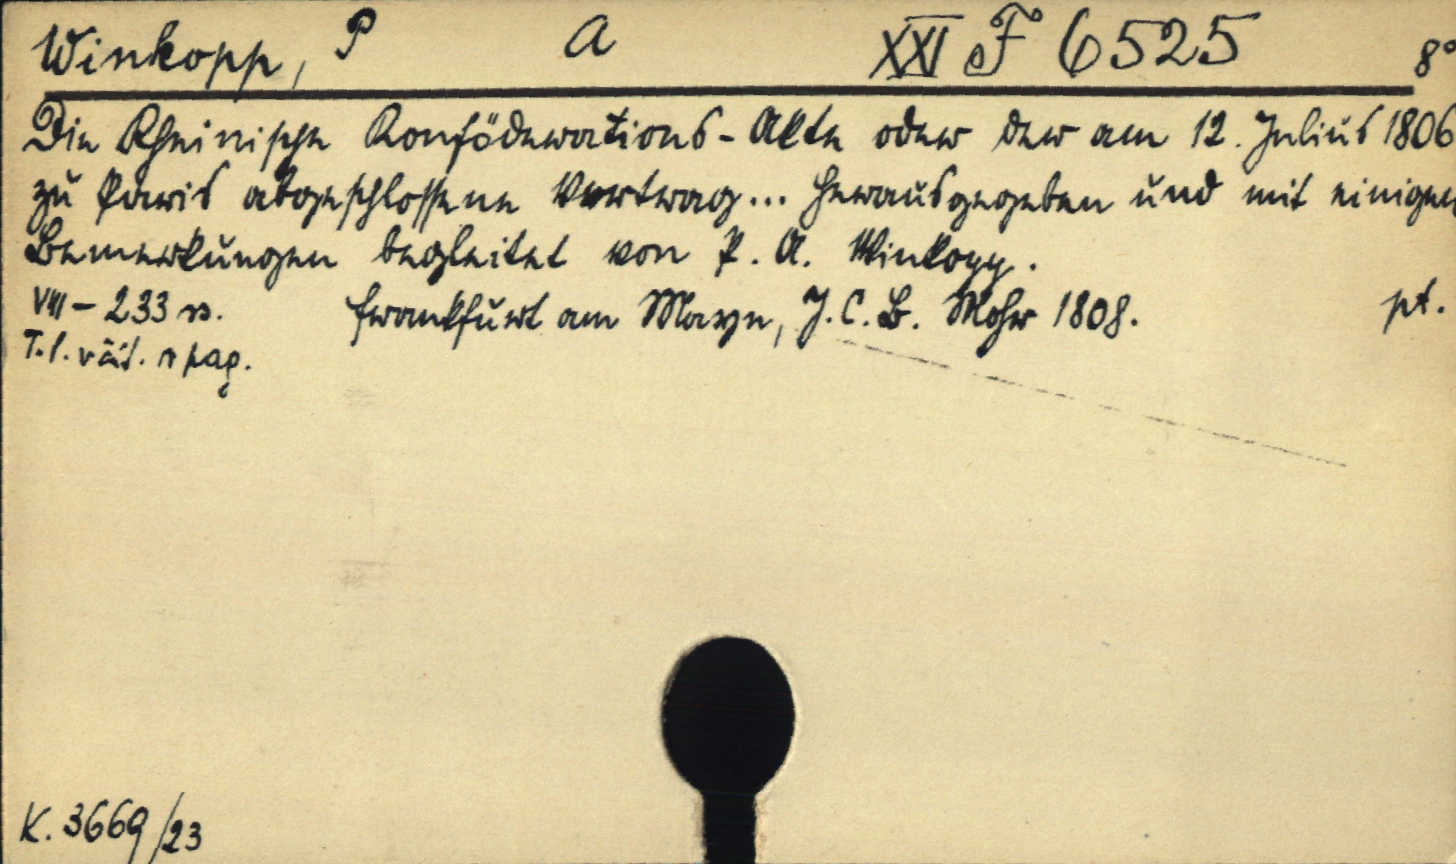 Winkopp, P A XXI F 6525 8°
Die Rheinische Konföderations-Akte oder der am 12. Julius 1806
zu Paris abgeschlossene Vertrag... Herausgegeben und mit einigen
Bemerkungen begleitet von P. A. Winkopp.
VIII - 233 s. Frankfurt am Mayn, J. C. B. Mohr 1808. pt.
T. l. váz. n pag.
K. 3669/23